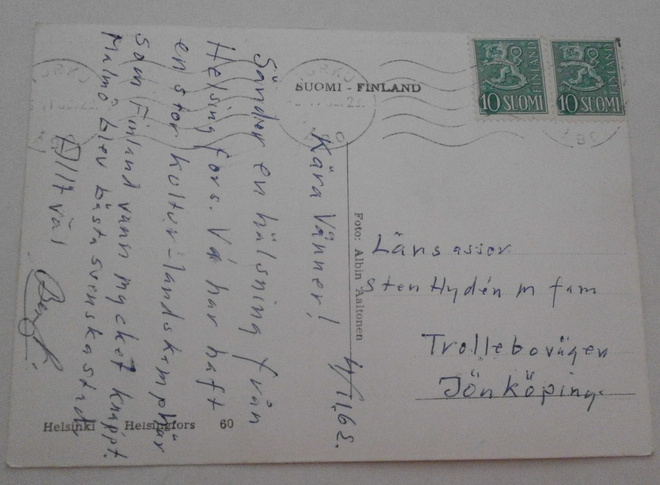 SUOMI - FINLAND
10 SUOMI
10 SUOMI
Kära Vänner!
4/11 68.
Sänder en hälsning från
Helsingfors. Vi har haft
en stor kultur-landskamp här
som Finland vann mycket knappt.
Malmö blev bästa svenska stad
Allt väl
Bengt.
Foto: Albin Aaltonen
Länsassor
Sten Hydén m fam
Trollebovägen
Jönköping
Helsinki - Helsingfors 60